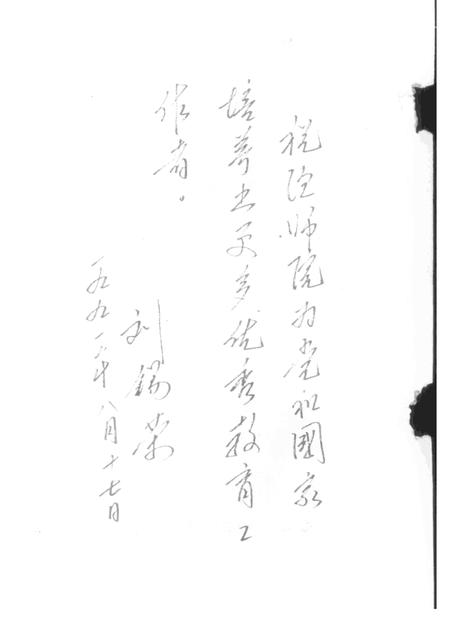 祝温师院为党和國家
培养出更多优秀教育工
作者。
刘锡荣
一九九年八月十七日